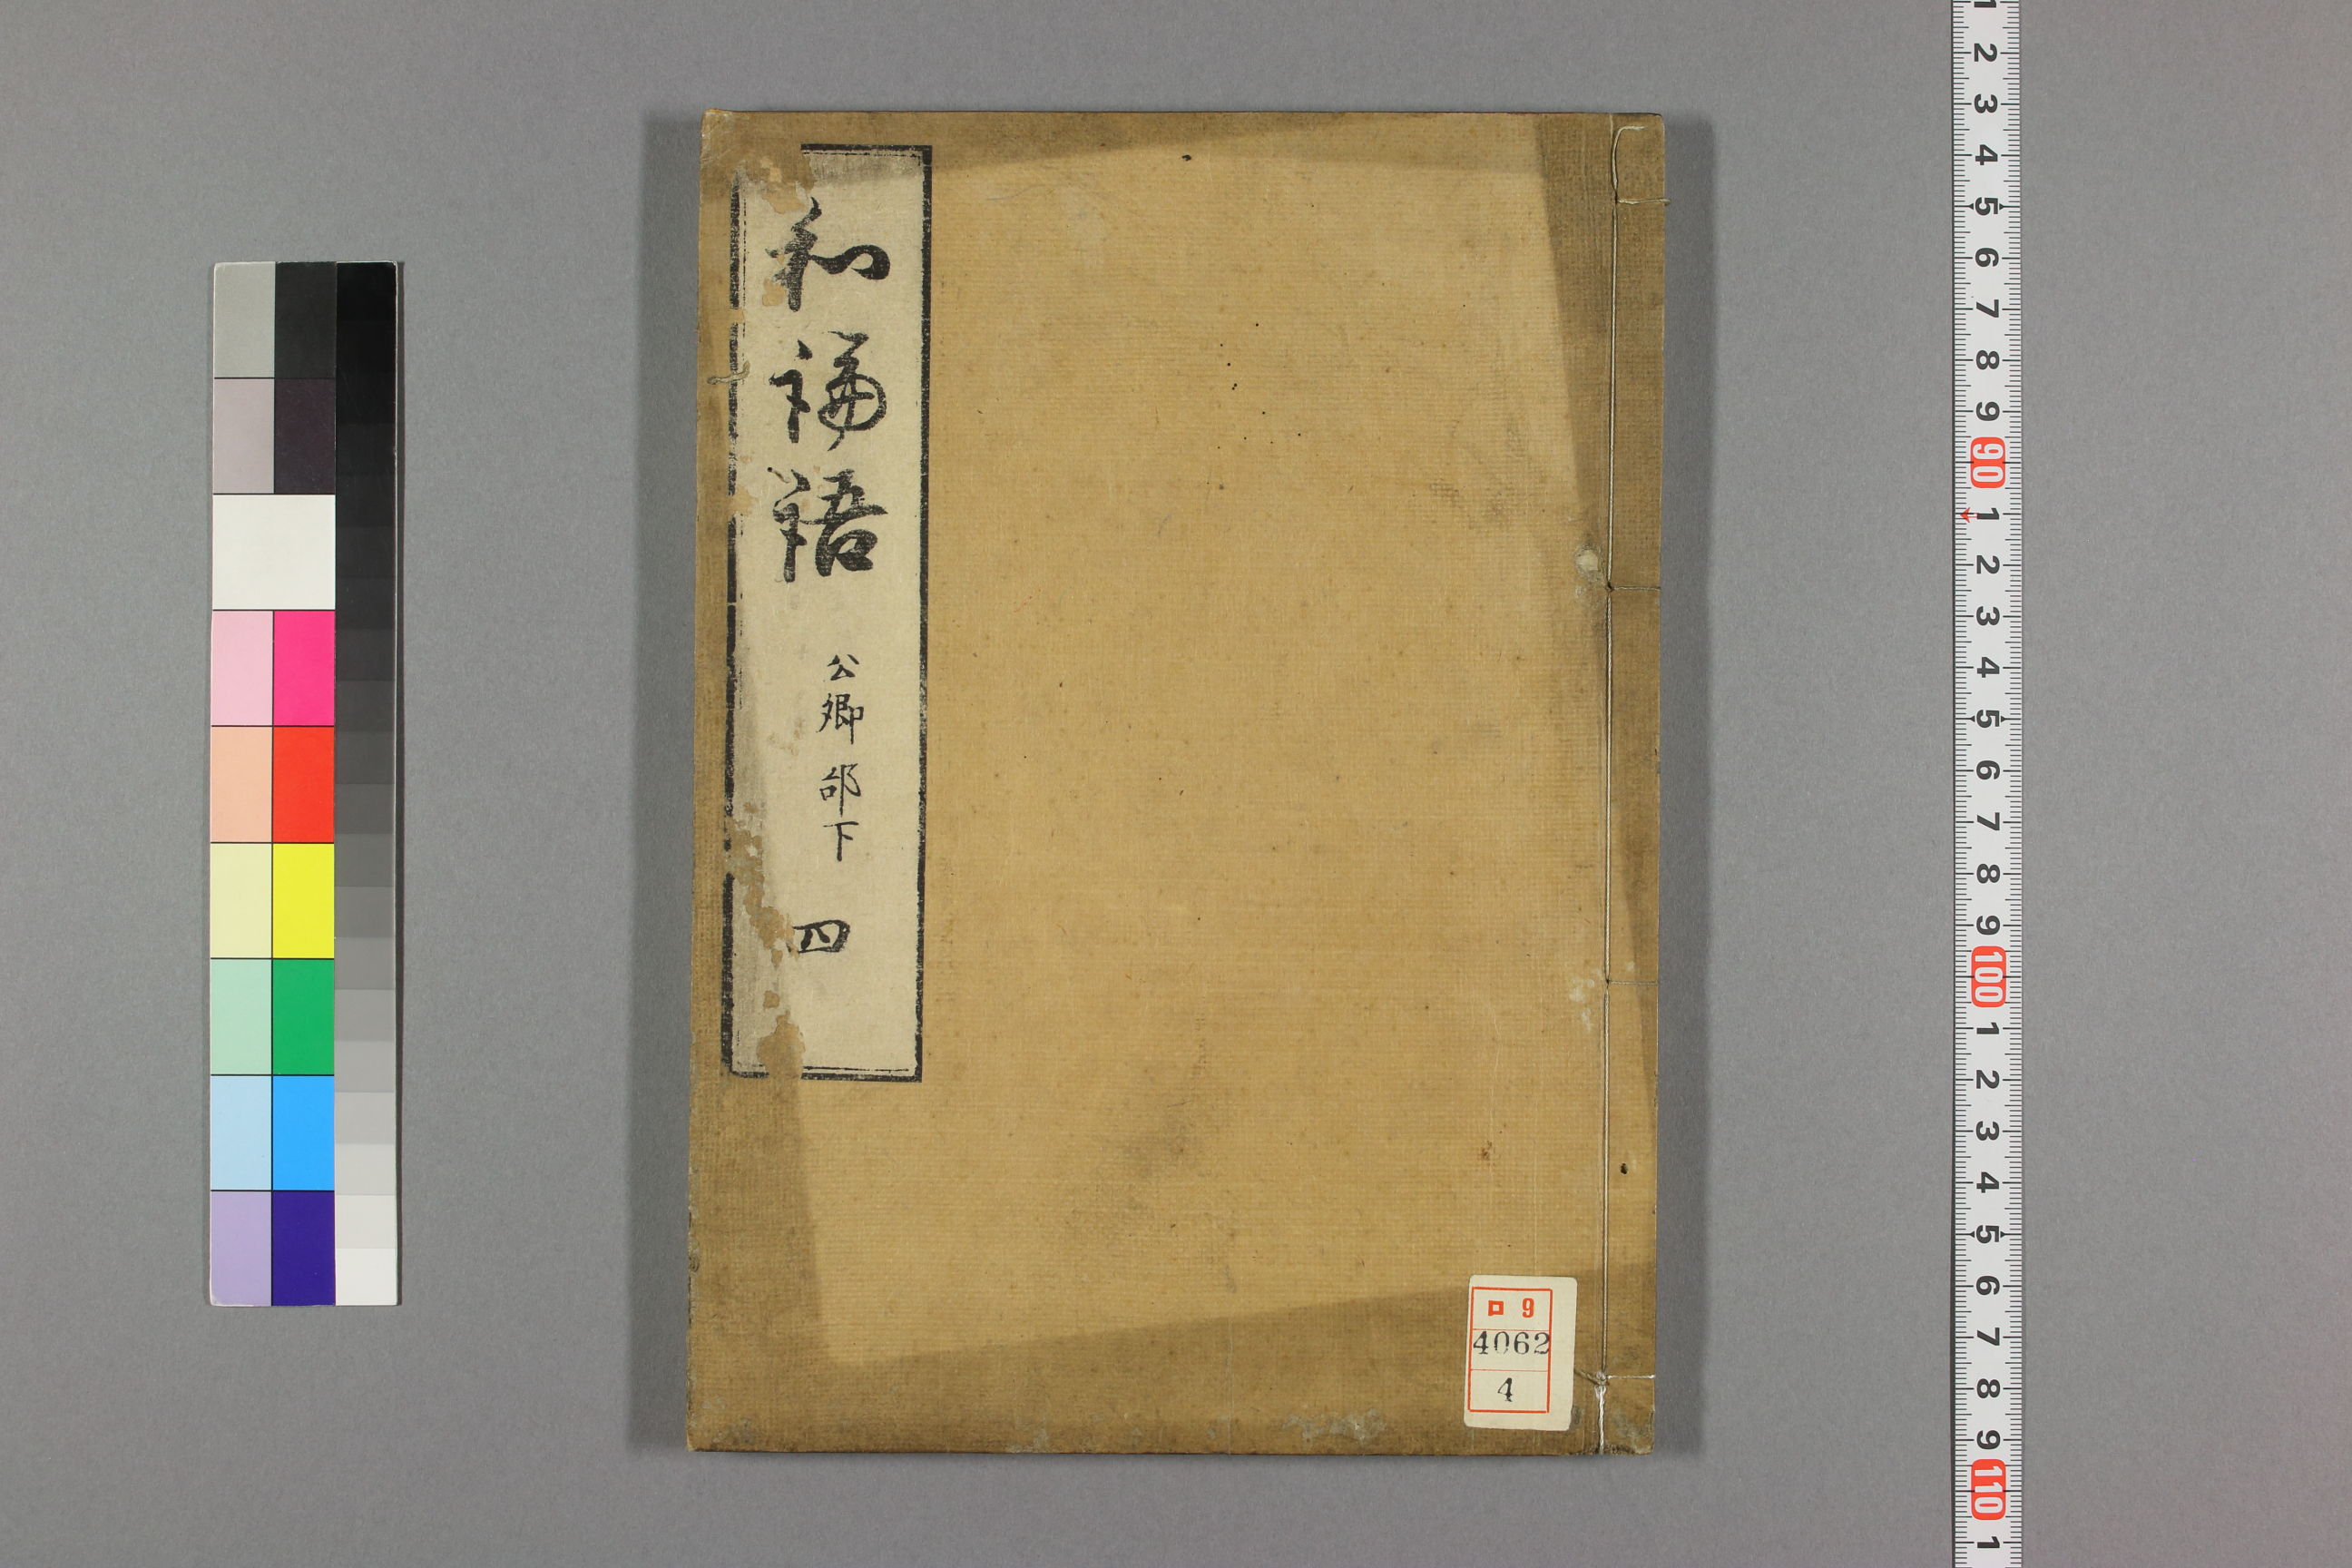 和論語
公卿部下
四
ロ 9
4062
4
1
2
3
4
5
6
7
8
9
90
1
2
3
4
5
6
7
8
9
100
1
2
3
4
5
6
7
8
9
110
1